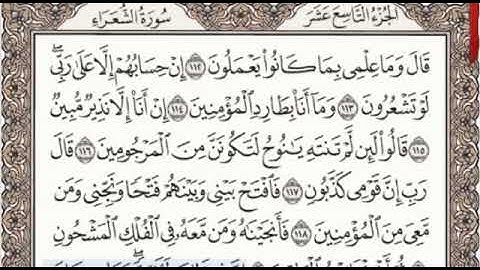 سُورَةُ الشُّعَرَاءِ الجُزْءُ التَّاسِعَ عَشَرَ
قَالَ وَمَا عِلْمِى بِمَا كَانُوا۟ يَعْمَلُونَ ١١٢ إِنْ حِسَابُهُمْ إِلَّا عَلَىٰ رَبِّى ۖ
لَوْ تَشْعُرُونَ ١١٣ وَمَآ أَنَا۠ بِطَارِدِ ٱلْمُؤْمِنِينَ ١١٤ إِنْ أَنَا۠ إِلَّا نَذِيرٌ مُّبِينٌ
١١٥ قَالُوا۟ لَئِن لَّمْ تَنتَهِ يَٰنُوحُ لَتَكُونَنَّ مِنَ ٱلْمَرْجُومِينَ ١١٦ قَالَ
رَبِّ إِنَّ قَوْمِى كَذَّبُونِ ١١٧ فَٱفْتَحْ بَيْنِى وَبَيْنَهُمْ فَتْحًا وَنَجِّنِى وَمَن
مَّعِىَ مِنَ ٱلْمُؤْمِنِينَ ١١٨ فَأَنجَيْنَٰهُ وَمَن مَّعَهُۥ فِى ٱلْفُلْكِ ٱلْمَشْحُونِ